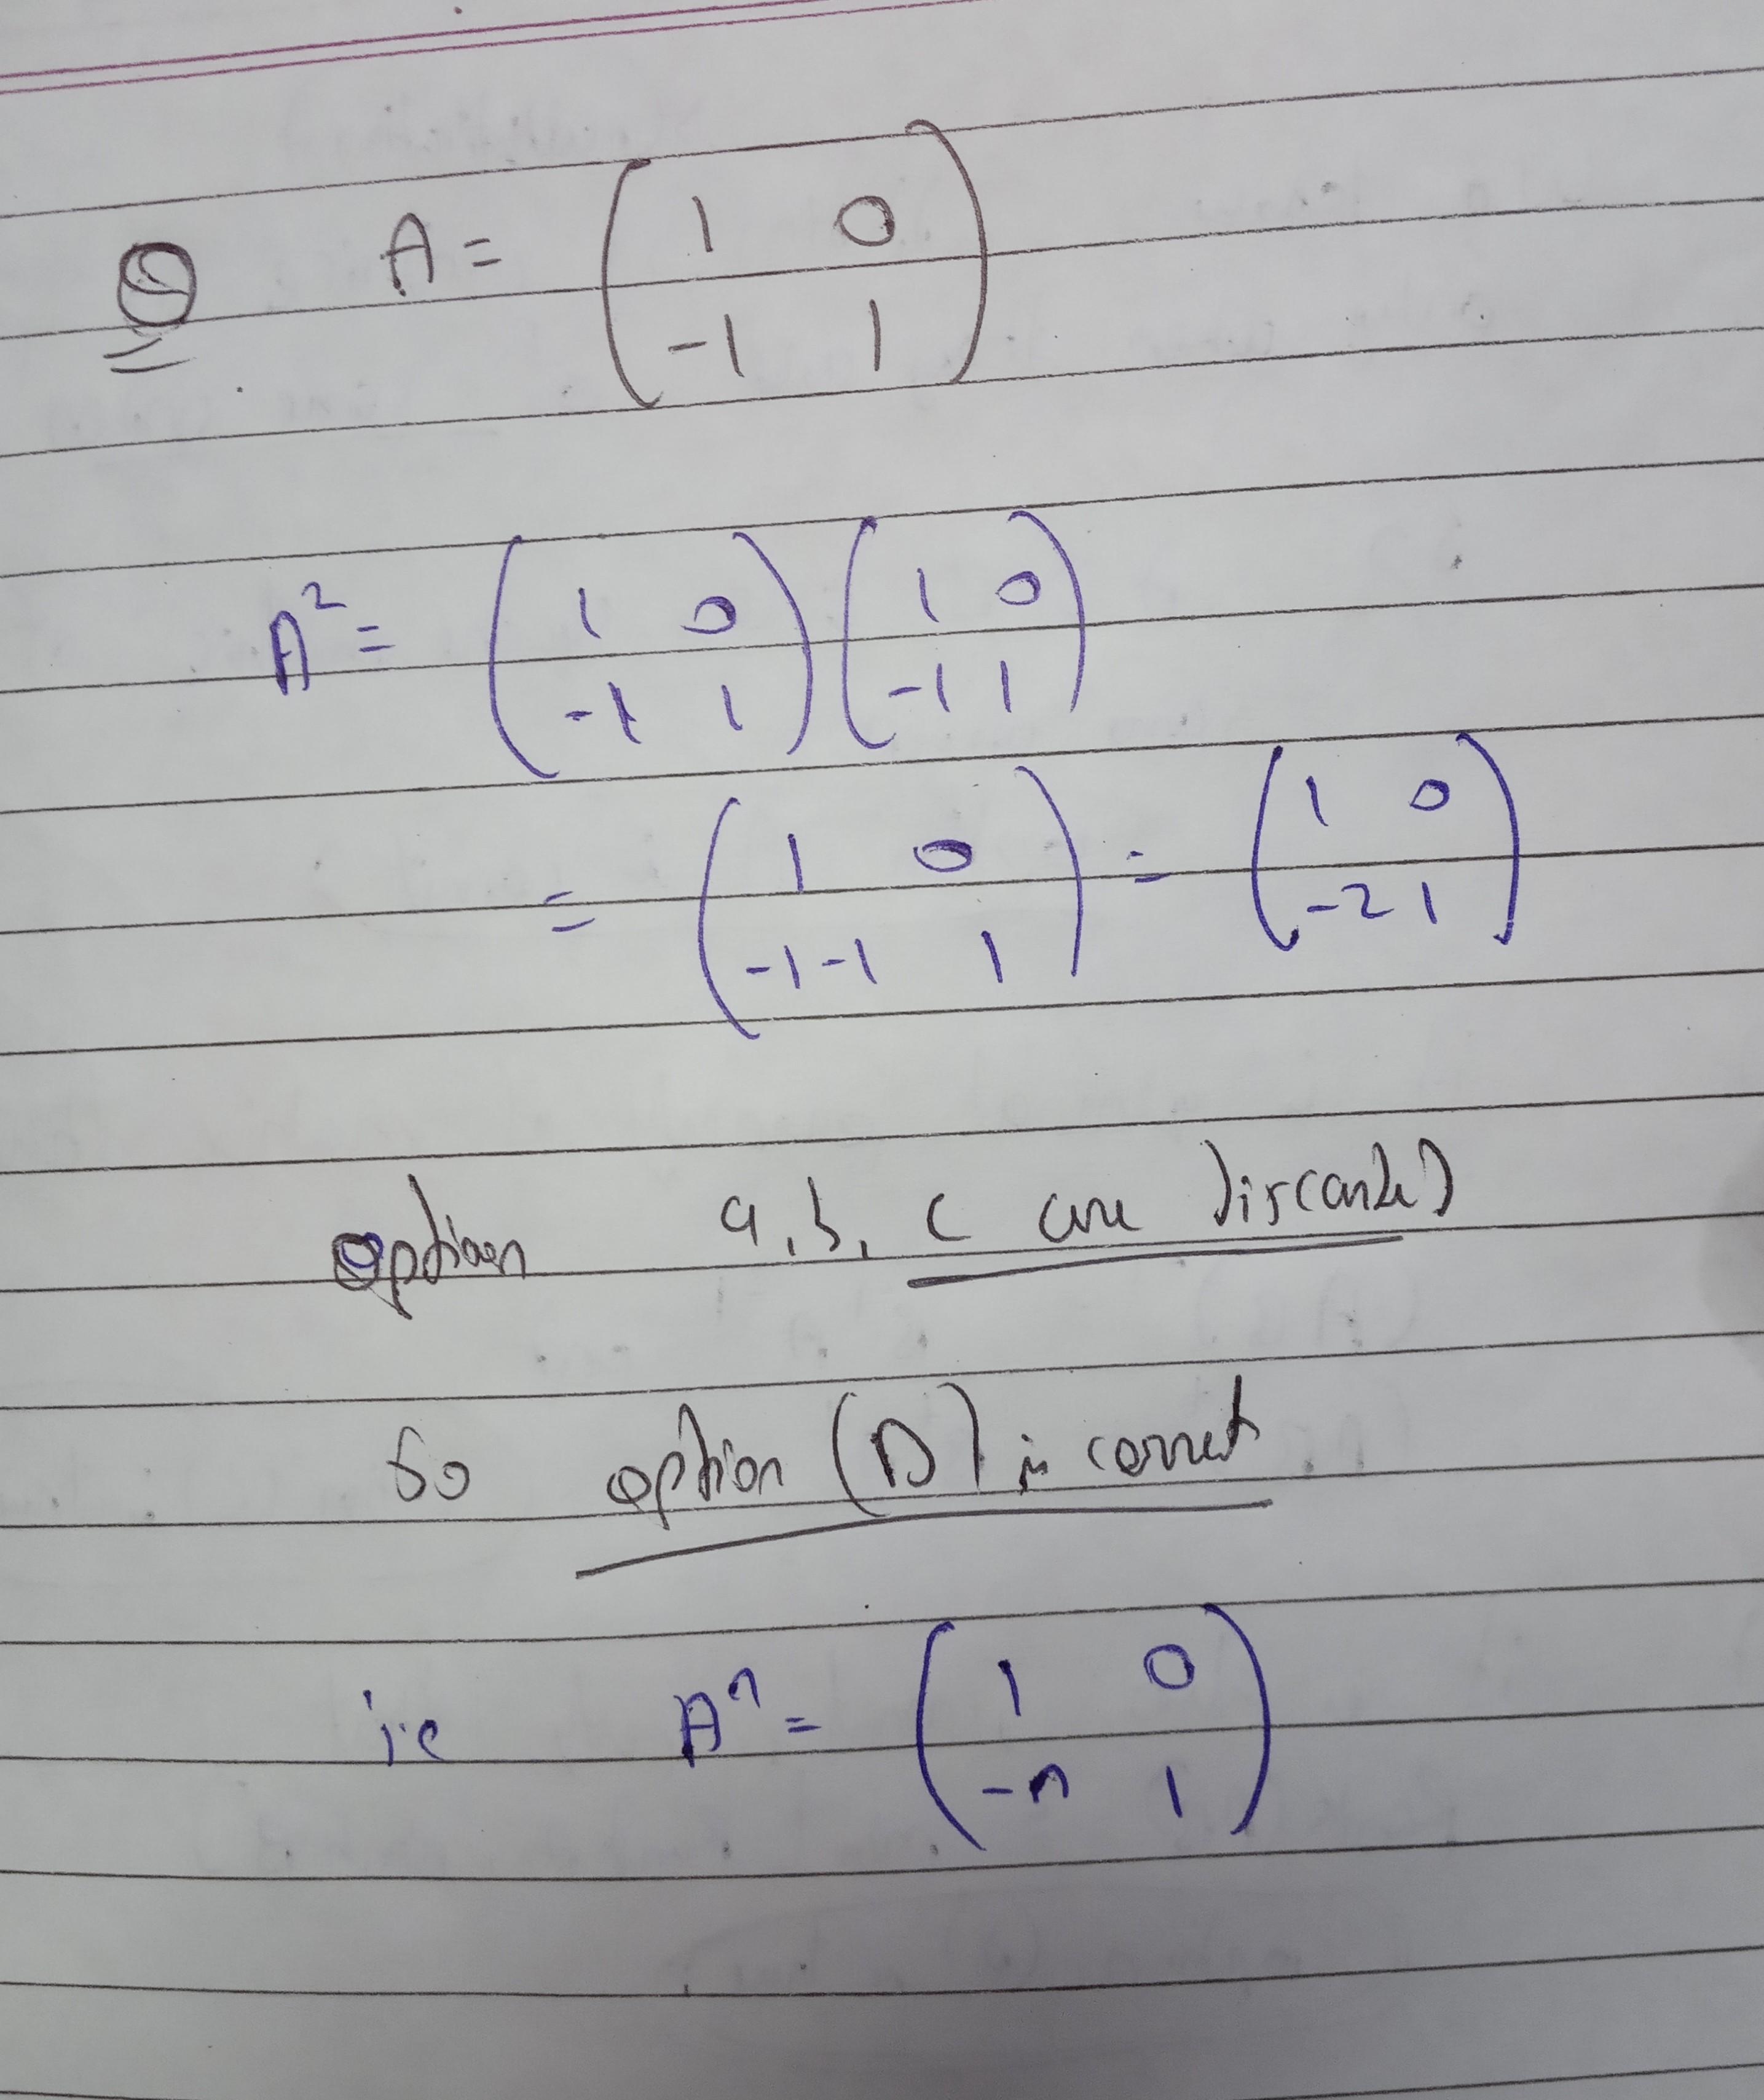 Q A = ( 1 0
-1 1 )
A² = ( 1 0
-1 1 ) ( 1 0
-1 1 )
= ( 1 0
-1-1 1 ) = ( 1 0
-2 1 )
option a, b, c are Discarded
So option (D) is correct
i.e Aⁿ = ( 1 0
-n 1 )